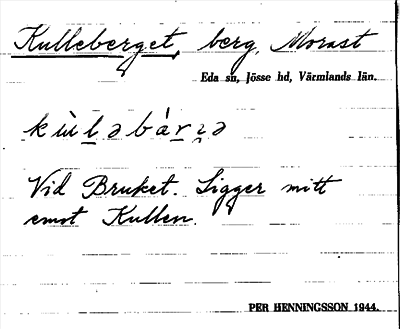 Kulleberget, berg, Morast
Eda sn, Jösse hd, Värmlands län.
kùləbárɿə
Vid Bruket. Ligger mitt
emot Kullen.
PER HENNINGSSON 1944.